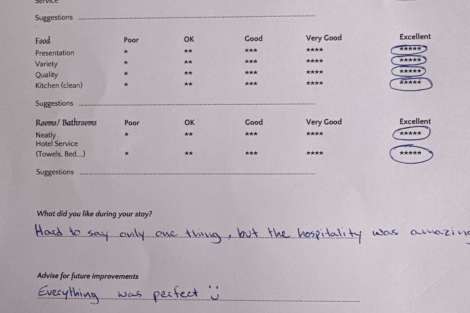 Service
Suggestions
Food Poor OK Good Very Good Excellent
Presentation * ** *** **** *****
Variety * ** *** **** *****
Quality * ** *** **** *****
Kitchen (clean) * ** *** **** *****
Suggestions
Rooms/ Bathrooms Poor OK Good Very Good Excellent
Neatly * ** *** **** *****
Hotel Service
(Towels, Bed...) * ** *** **** *****
Suggestions
What did you like during your stay?
Hard to say only one thing, but the hospitality was amazing
Advise for future improvements
Everything was perfect :)